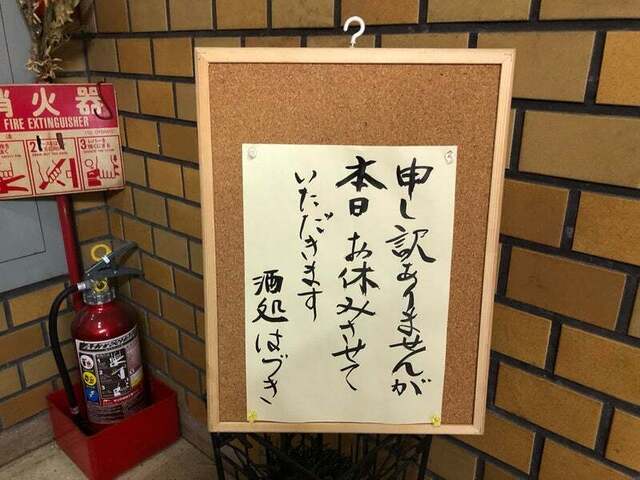 消火器
FIRE EXTINGUISHER
申し訳ありませんが
本日 お休みさせて
いただきます
酒処 はづき